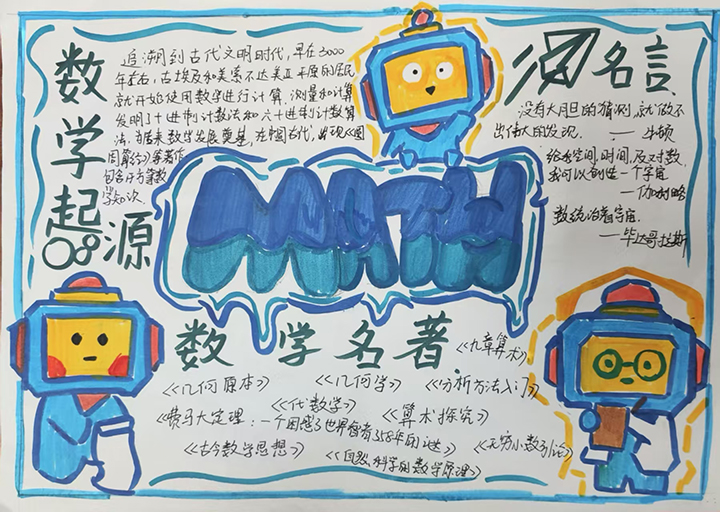 数学起源
追溯到古代文明时代，早在3000
年左右，古埃及和美索不达美亚平原的居民
就开始使用数字进行计算、测量和计算
发明了十进制计数法和六十进制计数算
法，为后来数学发展奠基，在中国古代，出现《周
周髀》等著作
包含了方等数
学知识。
MATH
名言
没有大胆的猜测，就做不
出伟大的发现。 —— 牛顿
给我空间、时间、及对数，
我可以创造一个宇宙
——伽利略
数统治着宇宙
——毕达哥拉斯
数学名著
《九章算术》
《几何原本》 《几何学》 《分析方法入门》
《代数学》 《算术探究》
《费马大定理：一个困惑了世间智者358年的谜》
《古今数学思想》 《无穷小数引论》
《自然科学的数学原理》